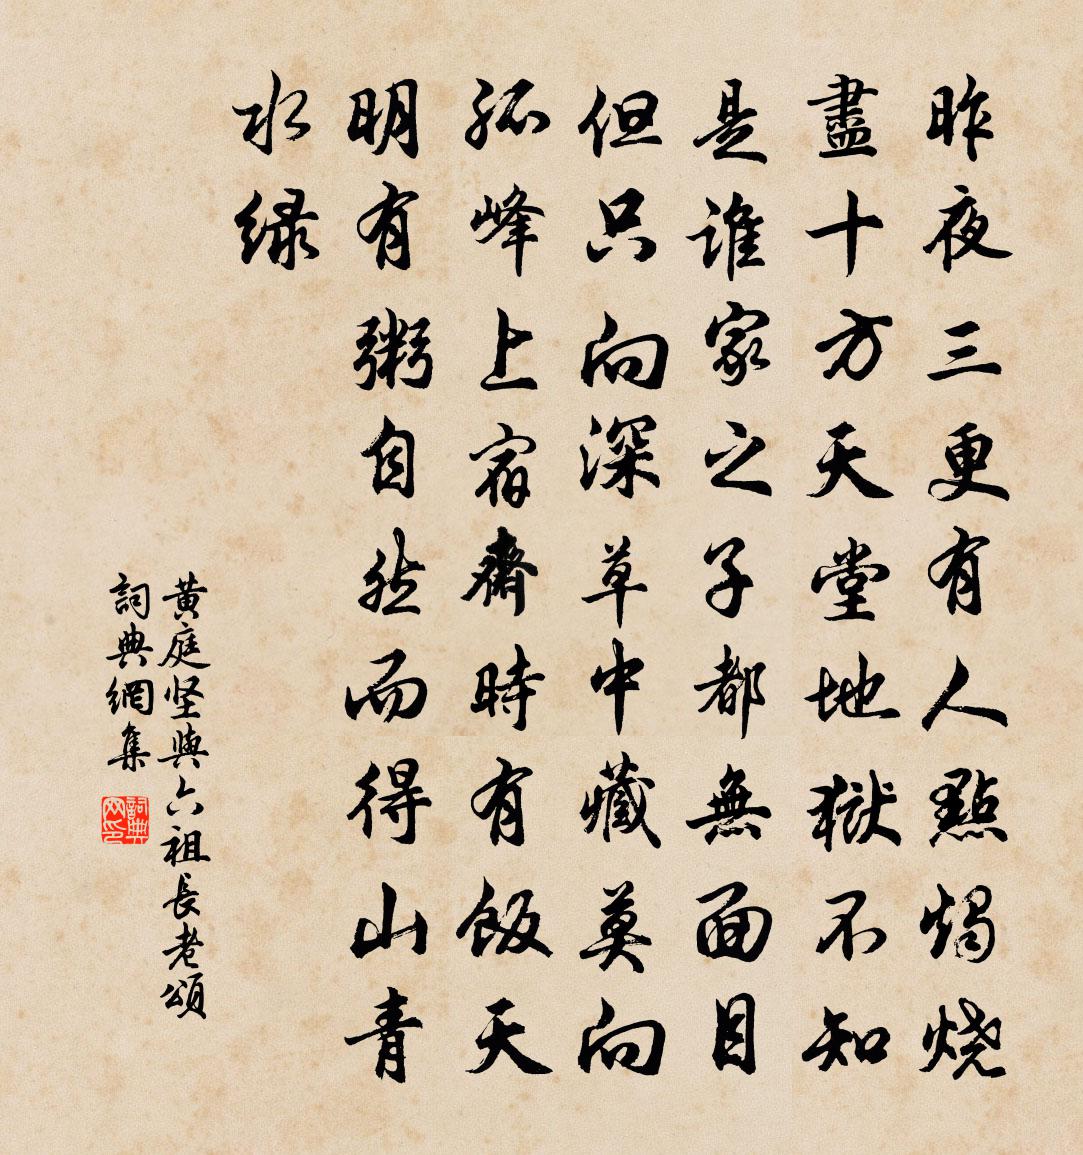 昨夜三更有人點燭烧
盡十方天堂地獄不知
是谁家之子都無面目
但只向深草中藏莫向
孤峰上宿齋時有飯天
明有粥自然而得山青
水绿
黄庭坚與六祖長老頌
詞典網集
詞典网印